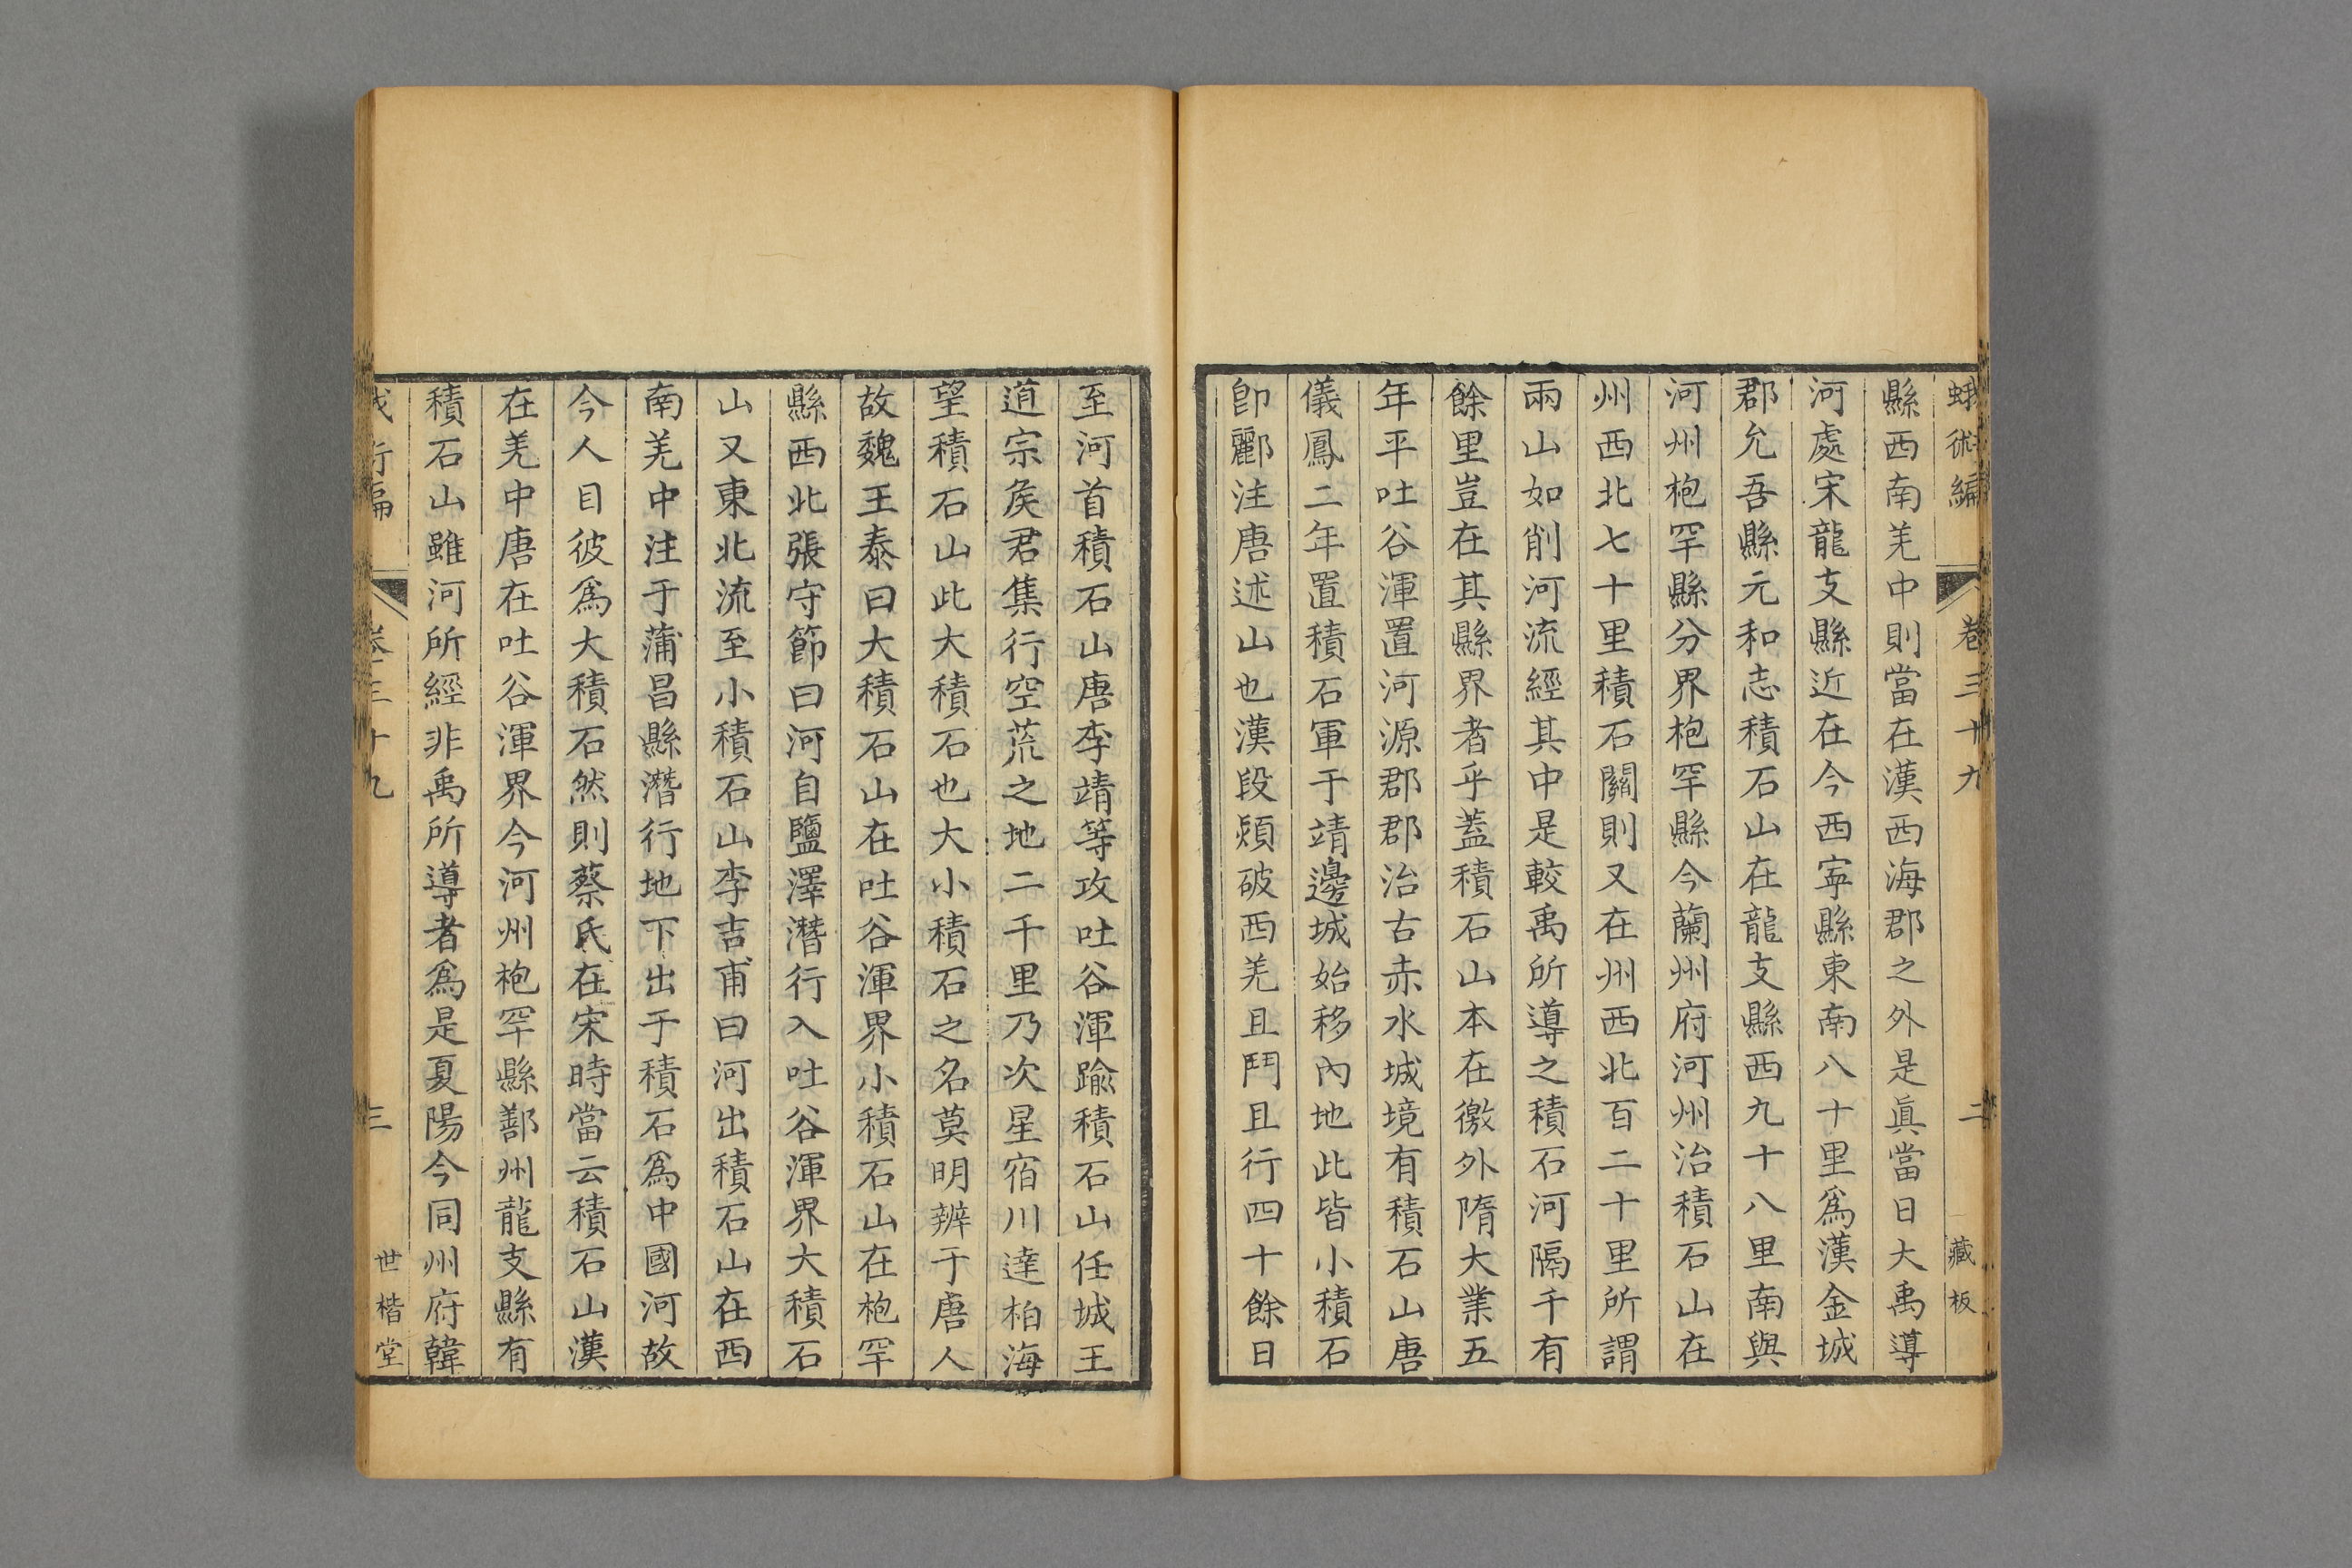 蛾術編 卷三十九 二 藏板
縣西南羌中則當在漢西海郡之外是眞當日大禹導
河處宋龍支縣近在今西寜縣東南八十里爲漢金城
郡允吾縣元和志積石山在龍支縣西九十八里南與
河州枹罕縣分界枹罕縣今蘭州府河州治積石山在
州西北七十里積石關則又在州西北百二十里所謂
兩山如削河流經其中是較禹所導之積石河隔千有
餘里豈在其縣界者乎蓋積石山本在徼外隋大業五
年平吐谷渾置河源郡郡治古赤水城境有積石山唐
儀鳳二年置積石軍于靖邊城始移內地此皆小積石
卽酈注唐述山也漢段熲破西羌且鬥且行四十餘日
至河首積石山唐李靖等攻吐谷渾踰積石山任城王
道宗矦君集行空荒之地二千里乃次星宿川達柏海
望積石山此大積石也大小積石之名莫明辨于唐人
故魏王泰曰大積石山在吐谷渾界小積石山在枹罕
縣西北張守節曰河自鹽澤潛行入吐谷渾界大積石
山又東北流至小積石山李吉甫曰河出積石山在西
南羌中注于蒲昌縣潛行地下出于積石爲中國河故
今人目彼爲大積石然則蔡氏在宋時當云積石山漢
在羌中唐在吐谷渾界今河州枹罕縣鄯州龍支縣有
積石山雖河所經非禹所導者爲是夏陽今同州府韓
卷三十九 三 世楷堂